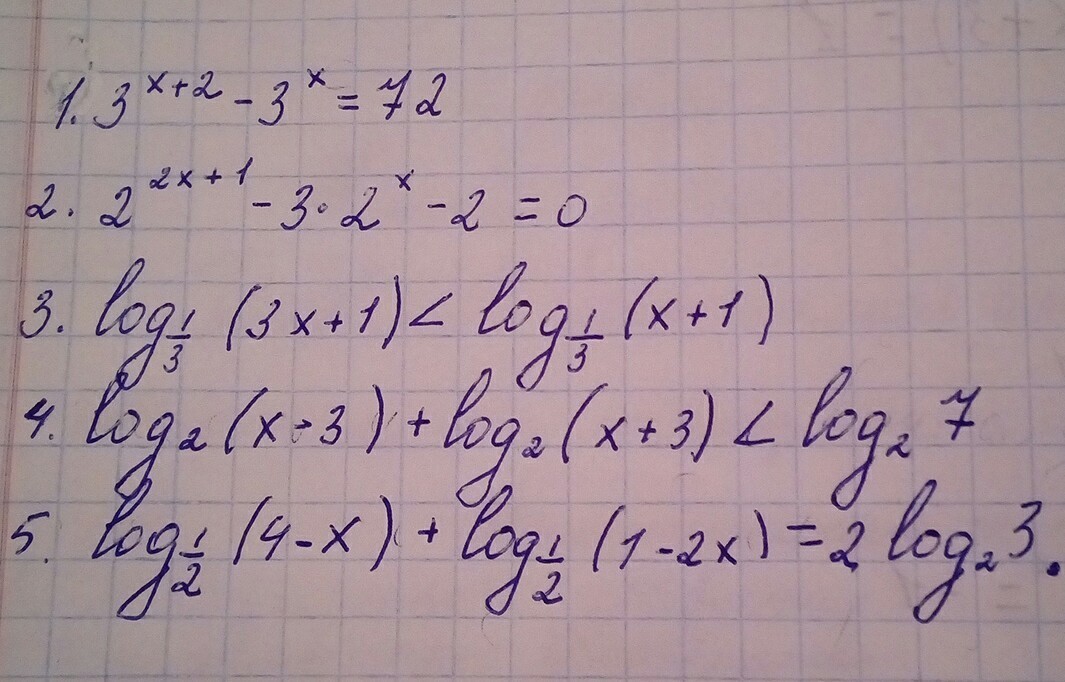 1. 3^(x+2) - 3^x = 72
2. 2^(2x+1) - 3·2^x - 2 = 0
3. log_(1/3) (3x+1) < log_(1/3) (x+1)
4. log_2 (x-3) + log_2 (x+3) < log_2 7
5. log_(1/2) (4-x) + log_(1/2) (1-2x) = 2 log_2 3.